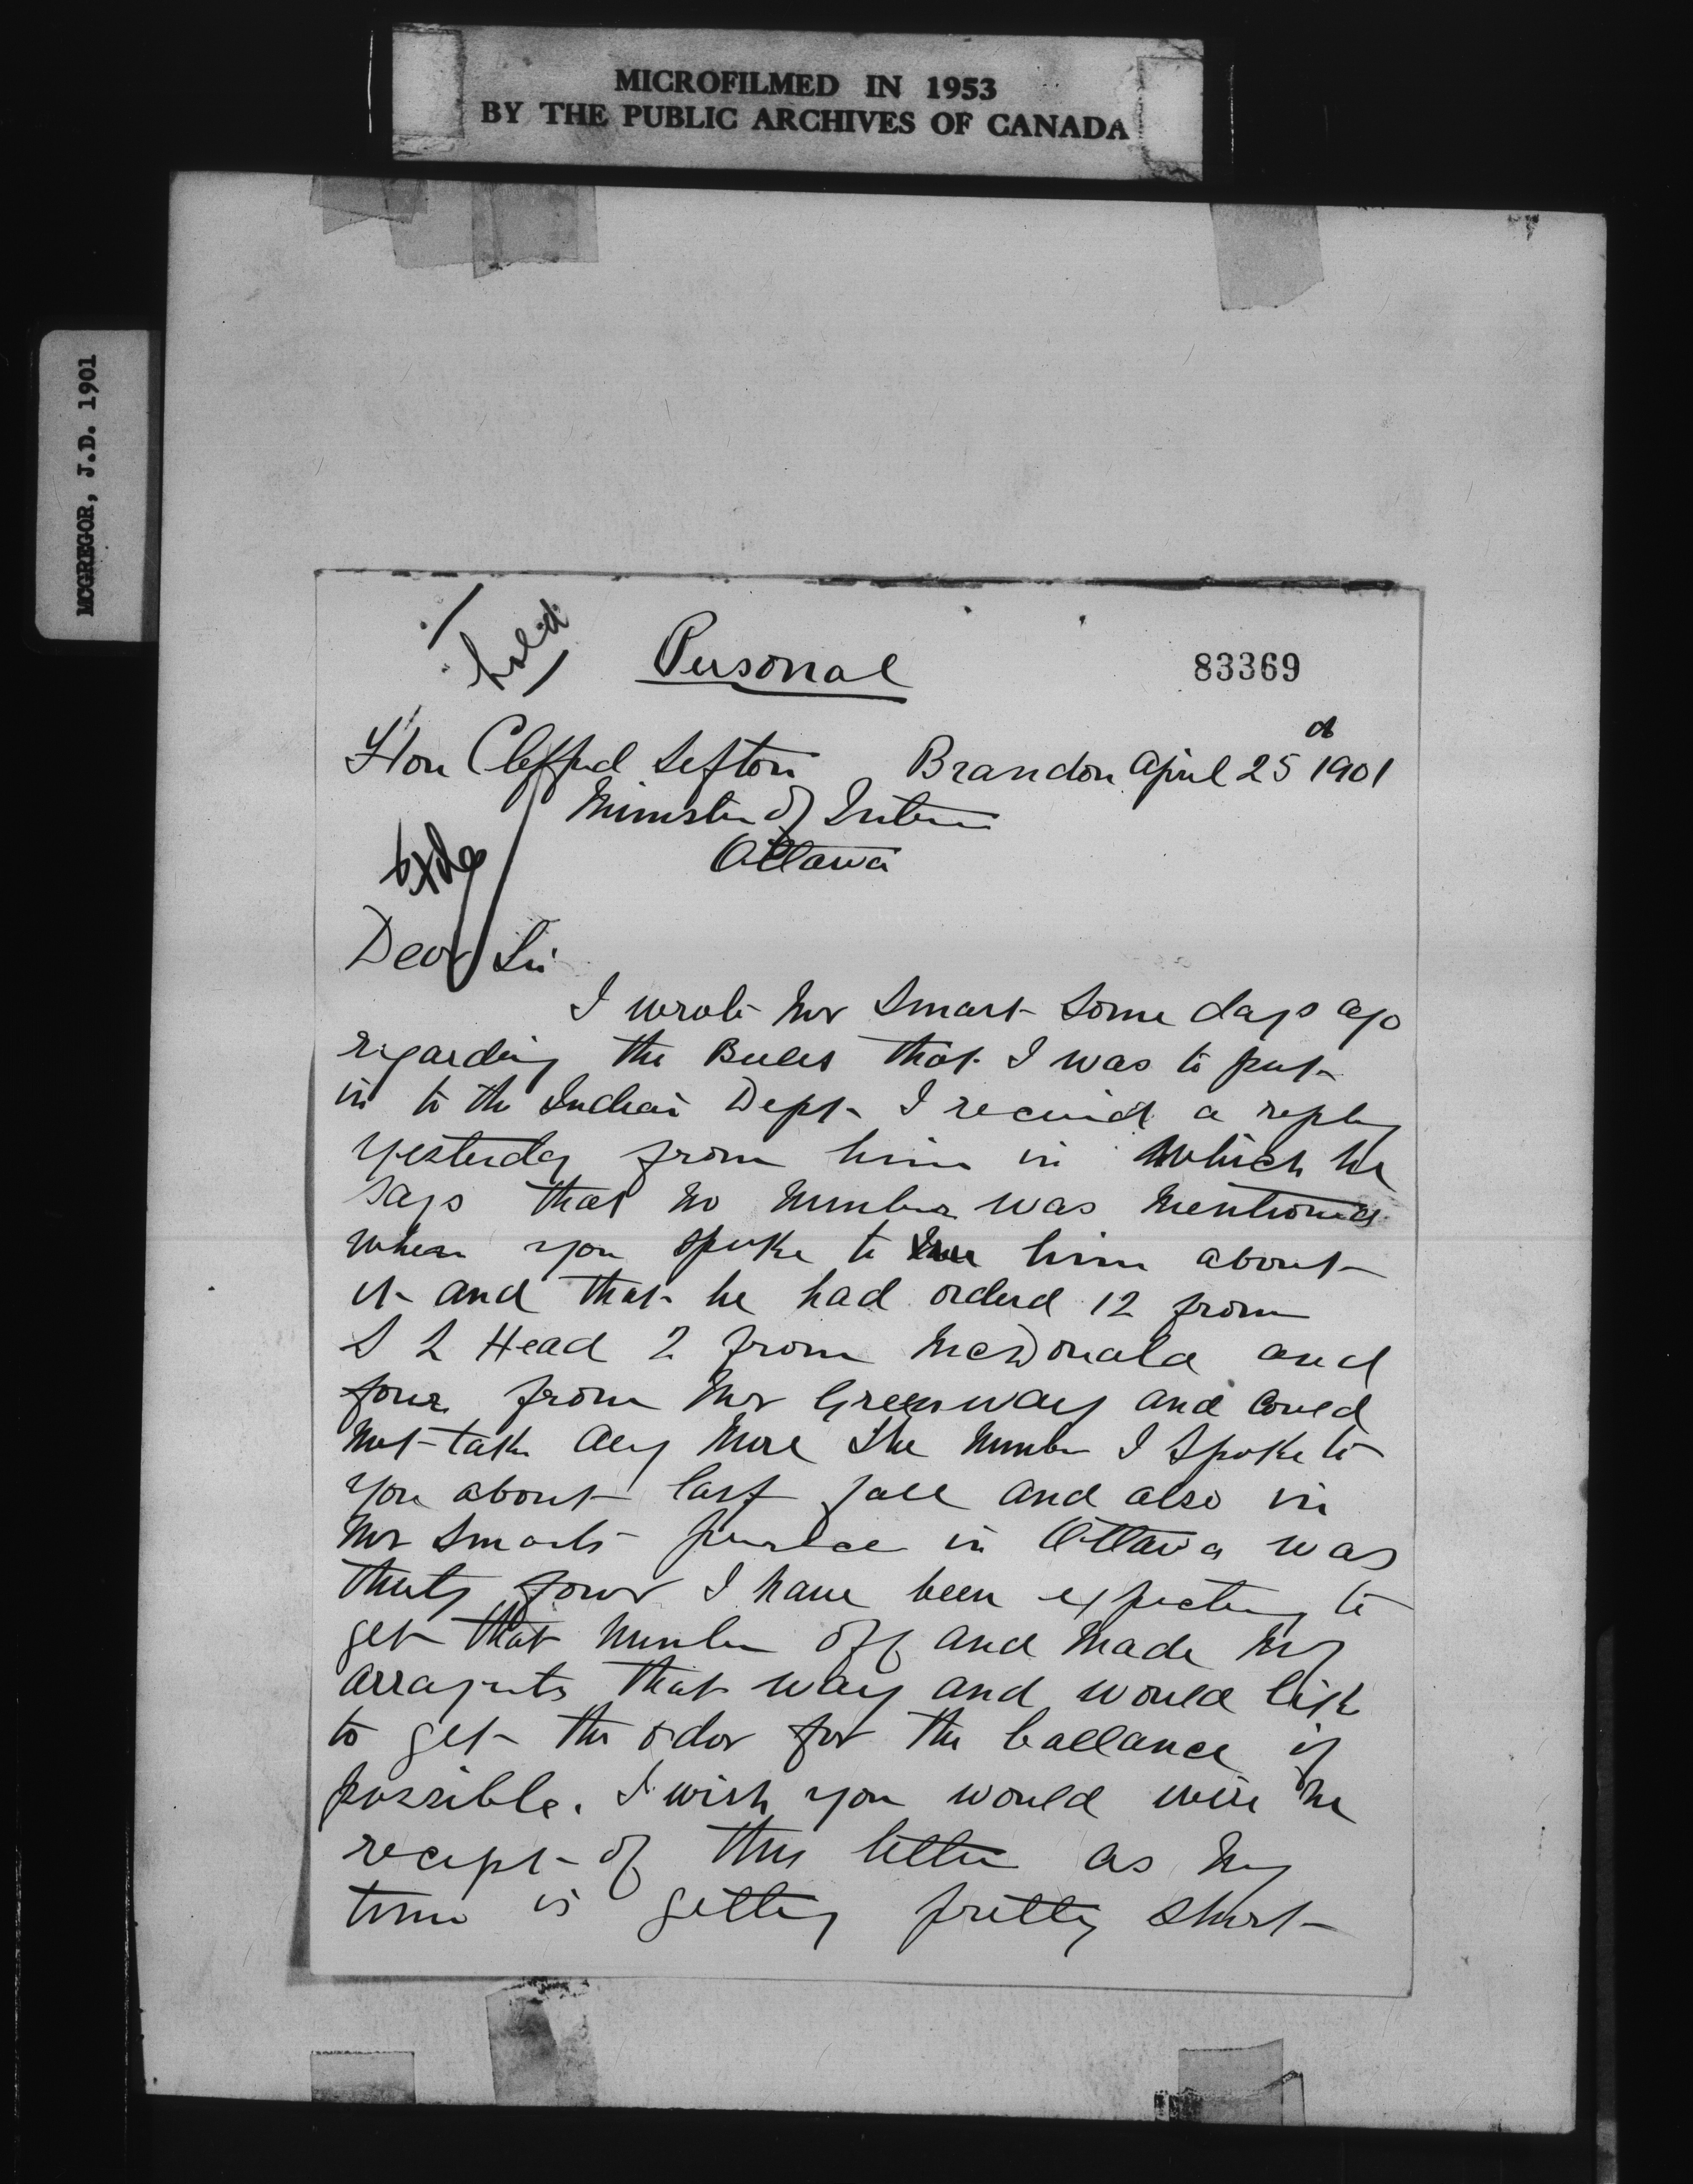 MICROFILMED IN 1953
BY THE PUBLIC ARCHIVES OF CANADA
MCGREGOR, J.D. 1901
hold
Personal
83369
Hon Clifford Sifton Brandon April 25 1901
Minister of Interior
Ottawa
Dear Sir
I wrote Mr Smart Some days ago
regarding the Bulls that I was to put
in to the Indian Dept I received a reply
yesterday from him in which he
says that no number was mentioned
when you spoke to him about
it and that he had orderd 12 from
S L Head 2 from McDonald and
four from Mr Greenway and could
not take any more The number I Spoke to
you about last fall and also in
Mr Smarts in Ottawa was
thirty four I have been expecting to
get that number off and made my
arragnts that way and would like
to get the order for the ballance if
possible. I wish you would wire me
recipt of this letter as my
time is getting pretty short